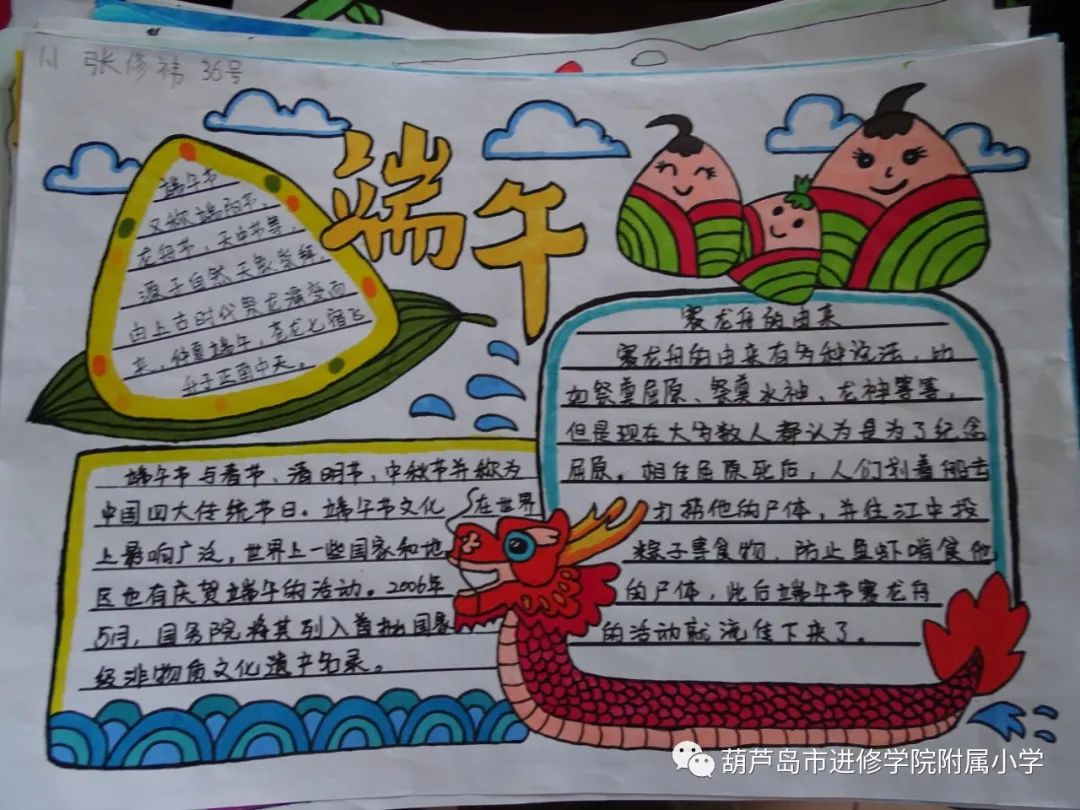 1.1 张修祎 36号
端午
端午节
又称端阳节、
龙舟节，天中节等，
源于自然天象崇拜，
由上古时代祭龙演变而
来，仲夏端午，苍龙七宿飞
升于正南中天。
赛龙舟的由来
赛龙舟的由来有多种说法，比
如祭奠屈原、祭奠水神、龙神等等，
但是现在大多数人都认为是为了纪念
屈原。相传屈原死后，人们划着船去
打捞他的尸体，并往江中投
粽子等食物，防止鱼虾啃食他
的尸体，此后端午节赛龙舟
的活动就流传下来了。
端午节与春节、清明节、中秋节并称为
中国四大传统节日。端午节文化在世界
上影响广泛，世界上一些国家和地
区也有庆贺端午的活动。2006年
5月，国务院将其列入首批国家
级非物质文化遗产名录。
葫芦岛市进修学院附属小学